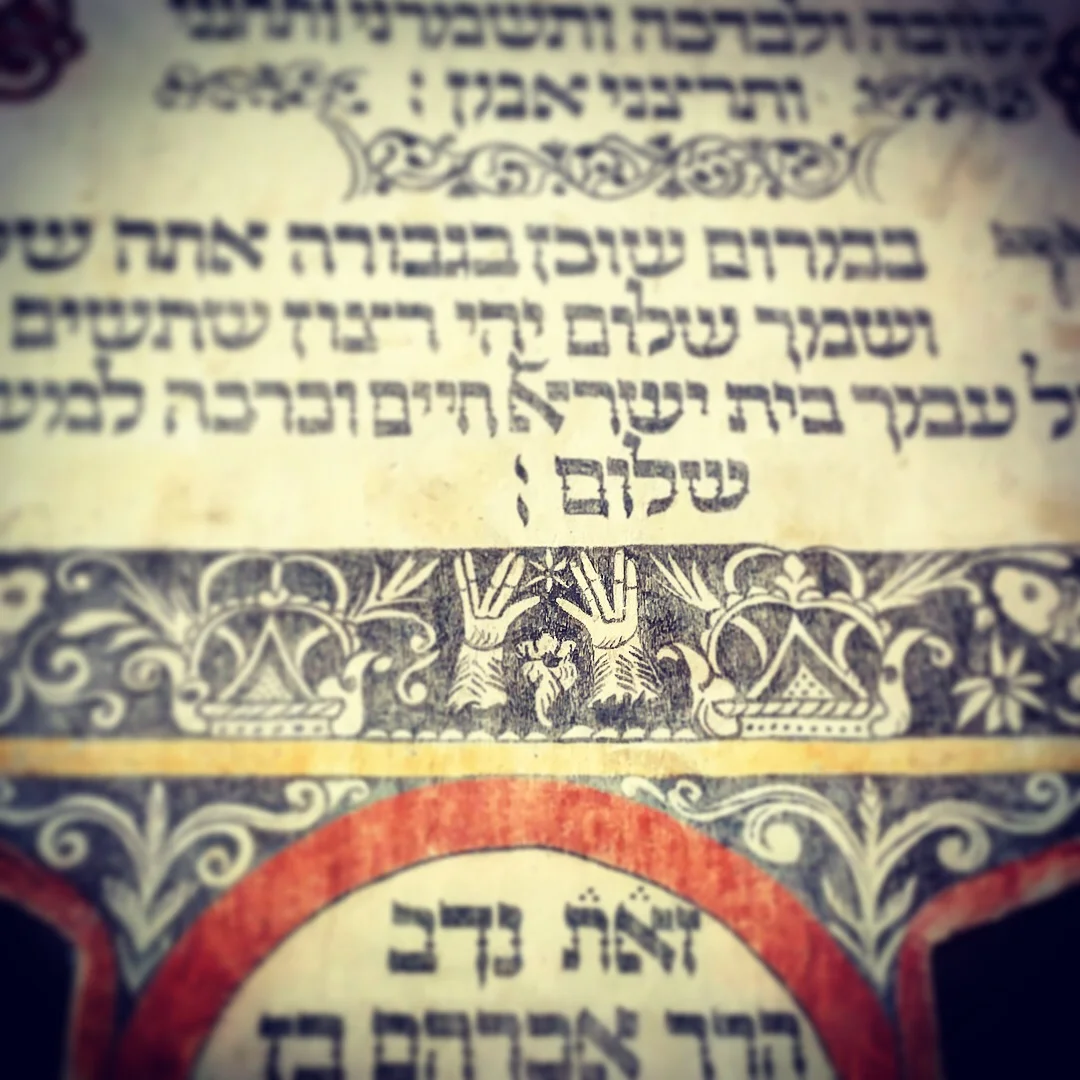 לטובה ולברכה ותשמרני ותחנני
ותריצני אבק :
במרום שוכן בגבורה אתה
ושמך שלום יהי רצון שתשים
עמך בית ישראל חיים וברכה
שלום :
זאת נדב
הרר אברהם בן